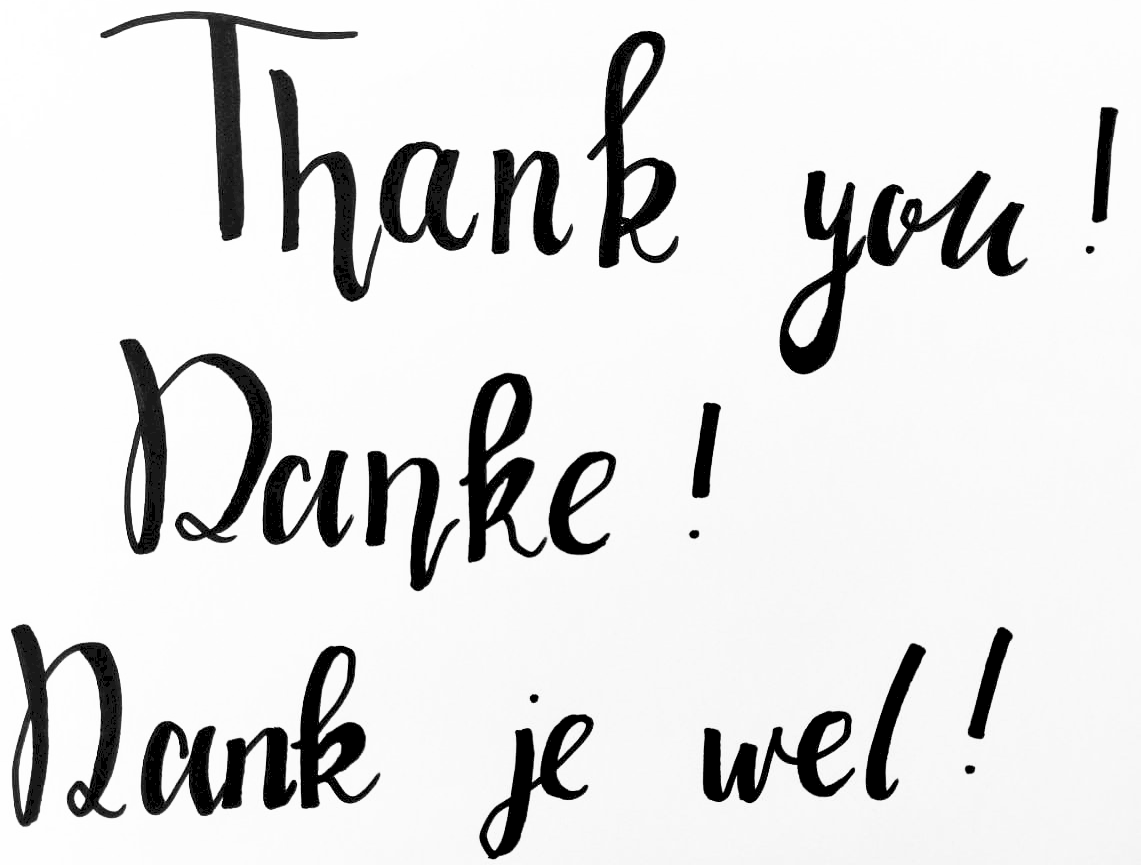 Thank you!
Danke!
Dank je wel!